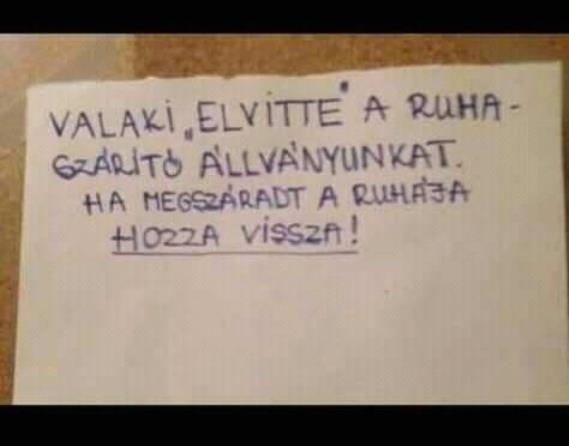 VALAKI „ELVITTE" A RUHA-
SZÁRÍTÓ ÁLLVÁNYUNKAT.
HA MEGSZÁRADT A RUHÁJA
HOZZA VISSZA!